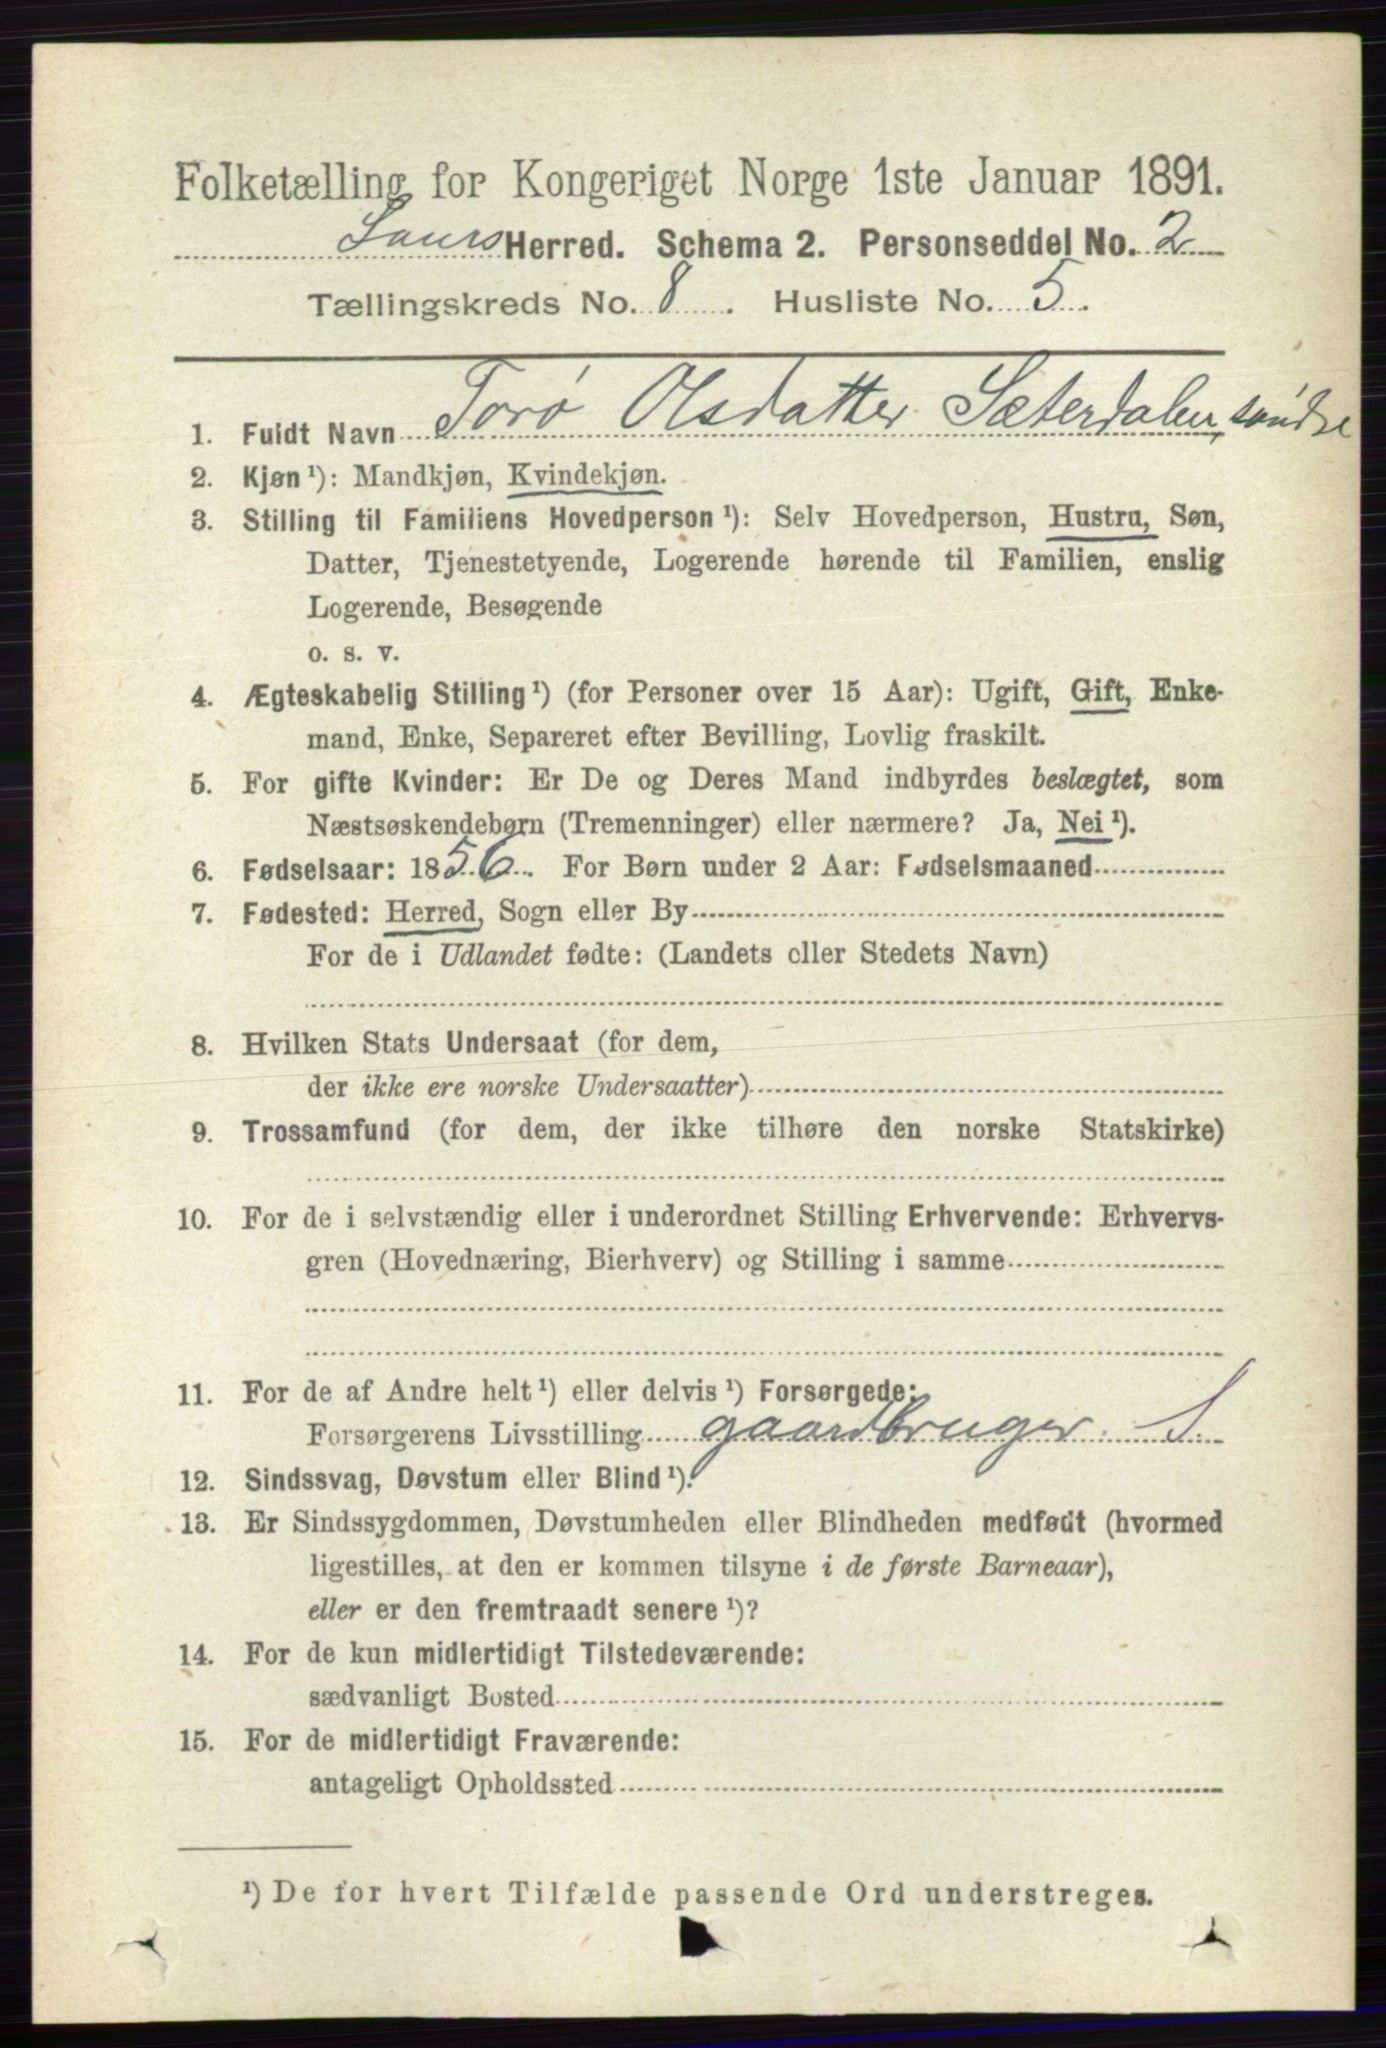 Folketælling for Kongeriget Norge 1ste Januar 1891.
Saurs Herred. Schema 2. Personseddel No. 2
Tællingskreds No. 8. Husliste No. 5.
1. Fuldt Navn Torø Olsdatter Sæterdalen, søndre
2. Kjøn ¹): Mandkjøn, Kvindekjøn.
3. Stilling til Familiens Hovedperson ¹): Selv Hovedperson, Hustru, Søn,
Datter, Tjenestetyende, Logerende hørende til Familien, enslig
Logerende, Besøgende
o. s. v.
4. Ægteskabelig Stilling ¹) (for Personer over 15 Aar): Ugift, Gift, Enke-
mand, Enke, Separeret efter Bevilling, Lovlig fraskilt.
5. For gifte Kvinder: Er De og Deres Mand indbyrdes beslægtet, som
Næstsøskendebørn (Tremenninger) eller nærmere? Ja, Nei ¹).
6. Fødselsaar: 1856. For Børn under 2 Aar: Fødselsmaaned
7. Fødested: Herred, Sogn eller By
For de i Udlandet fødte: (Landets eller Stedets Navn)
8. Hvilken Stats Undersaat (for dem,
der ikke ere norske Undersaatter)
9. Trossamfund (for dem, der ikke tilhøre den norske Statskirke)
10. For de i selvstændig eller i underordnet Stilling Erhvervende: Erhvervs-
gren (Hovednæring, Bierhverv) og Stilling i samme
11. For de af Andre helt ¹) eller delvis ¹) Forsørgede:
Forsørgerens Livsstilling gaardbruger. S.
12. Sindssvag, Døvstum eller Blind ¹).
13. Er Sindssygdommen, Døvstumheden eller Blindheden medfødt (hvormed
ligestilles, at den er kommen tilsyne i de første Barneaar),
eller er den fremtraadt senere ¹)?
14. For de kun midlertidigt Tilstedeværende:
sædvanligt Bosted
15. For de midlertidigt Fraværende:
antageligt Opholdssted
¹) De for hvert Tilfælde passende Ord understreges.